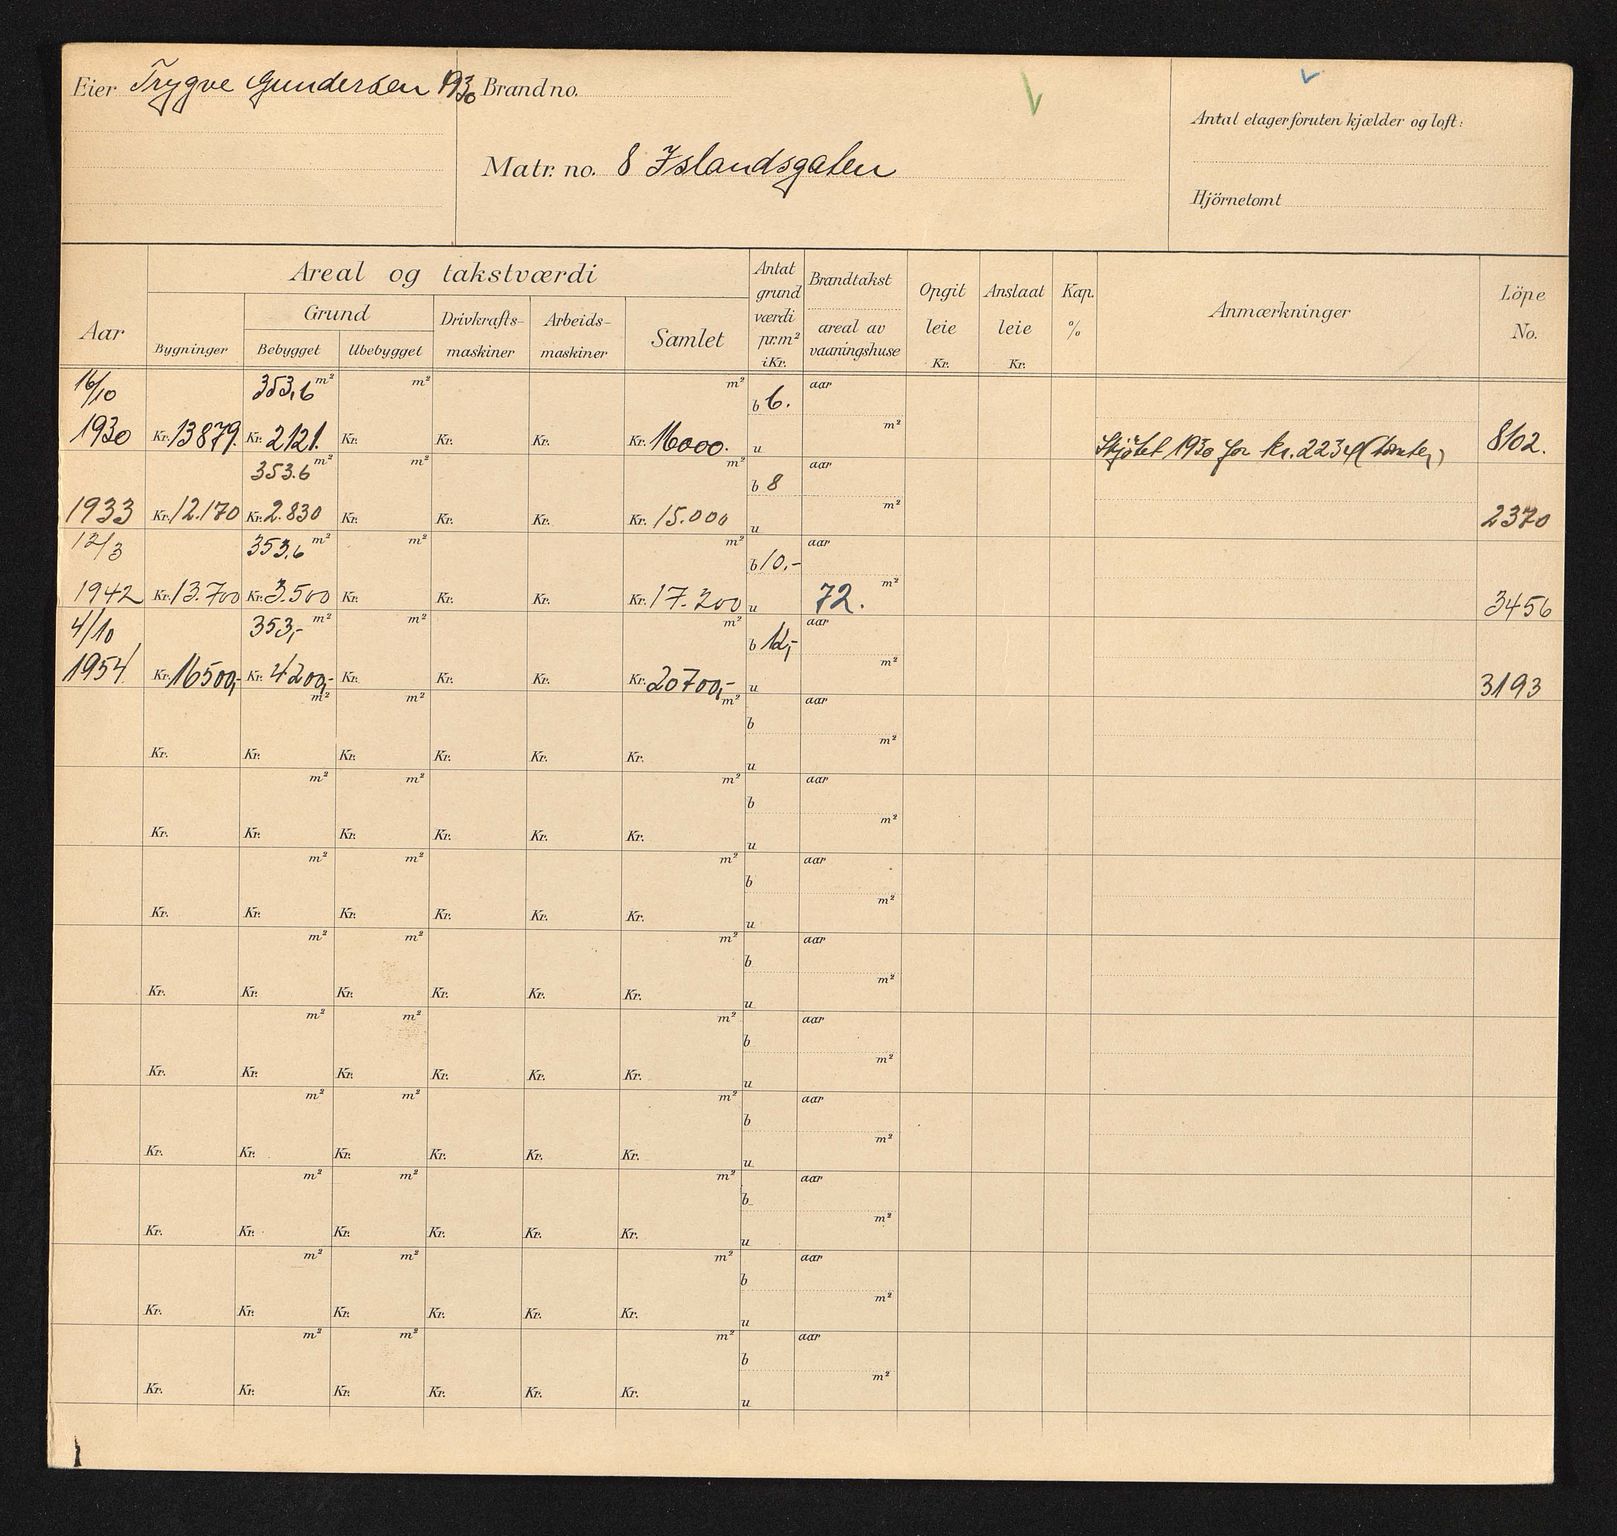 Eier Trygve Gundersen 1930 Brand no.
Antal etager foruten kjælder og loft:
Matr. no. 8 Islandsgaten
Hjörnetomt
Areal og takstværdi
Aar
Grund
Bygninger
Bebygget
Ubebygget
Drivkrafts-
maskiner
Arbeids-
maskiner
Samlet
Antat
grund
værdi
pr. m²
i Kr.
Brandtakst
areal av
vaaningshuse
Opgit
leie
Kr.
Anslaat
leie
Kr.
Kap.
%
Anmærkninger
Löpe
No.
16/10 353,6 m² m² m² b 6. aar
1930 Kr. 13879. Kr. 2121. Kr. Kr. Kr. Kr. 16000. u m² Skjötet 1930 for kr. 2234 8102.
353.6 m² m² m² b 8 aar
1933 Kr. 12.170 Kr. 2.830 Kr. Kr. Kr. Kr. 15.000 u m² 2370
12/3 353.6 m² m² m² b 10.- aar
1942 Kr. 13.700 Kr. 3.500 Kr. Kr. Kr. Kr. 17.200 u 72. m² 3456
4/10 353,- m² m² m² b 12,- aar
1954 Kr. 16500,- Kr. 4200,- Kr. Kr. Kr. Kr. 20700,- u m² 3193
m² m² m² b aar
Kr. Kr. Kr. Kr. Kr. Kr. u m²
m² m² m² b aar
Kr. Kr. Kr. Kr. Kr. Kr. u m²
m² m² m² b aar
Kr. Kr. Kr. Kr. Kr. Kr. u m²
m² m² m² b aar
Kr. Kr. Kr. Kr. Kr. Kr. u m²
m² m² m² b aar
Kr. Kr. Kr. Kr. Kr. Kr. u m²
m² m² m² b aar
Kr. Kr. Kr. Kr. Kr. Kr. u m²
m² m² m² b aar
Kr. Kr. Kr. Kr. Kr. Kr. u m²
m² m² m² b aar
Kr. Kr. Kr. Kr. Kr. Kr. u m²
m² m² m² b aar
Kr. Kr. Kr. Kr. Kr. Kr. u m²